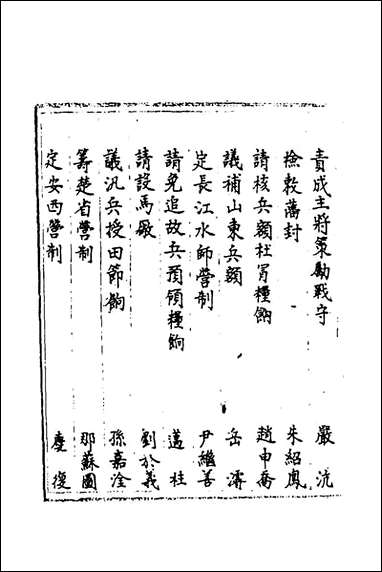 責成主將策勵戰守 嚴沆
撿敕藩封 朱紹鳳
請核兵額杜冐糧餉 趙申喬
議補山東兵額 岳濬
定長江水師營制 尹繼善
請免追故兵預領糧餉 邁柱
請設馬廠 劉於義
議汎兵授田節餉 孫嘉淦
籌楚省營制 那蘇圖
定安西營制 慶復